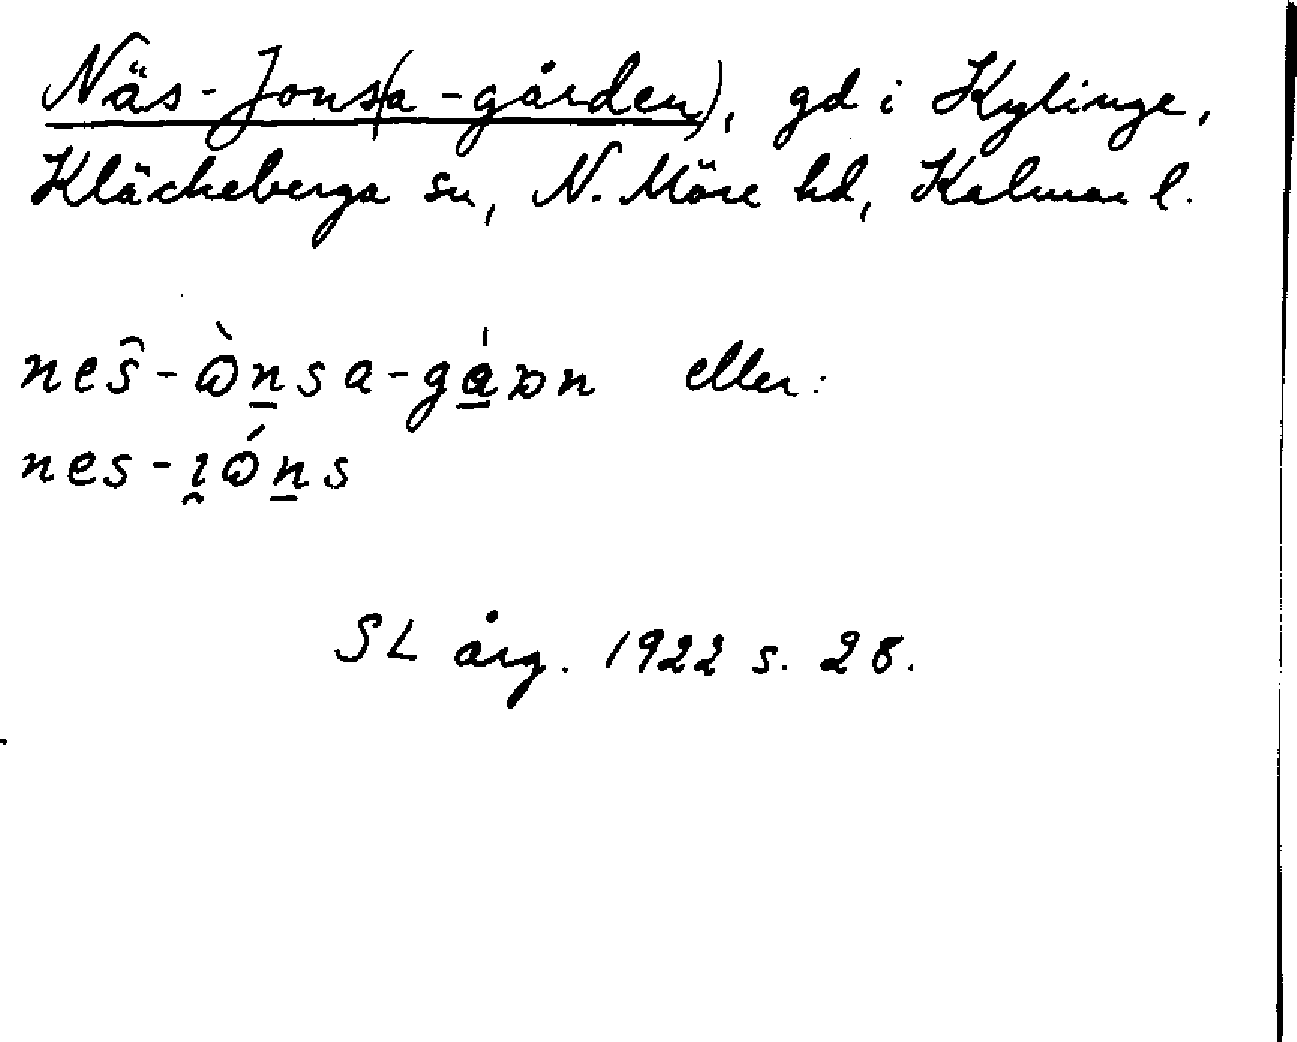 Näs-Jons(a-gården), gd i Kylinge,
Kläckeberga sn, N. Möre hd, Kalmar l.
nes̑-ò̱nsa-gá̱ɒn eller:
nes-ı̯ó̱ns
SL årg. 1922 s. 28.